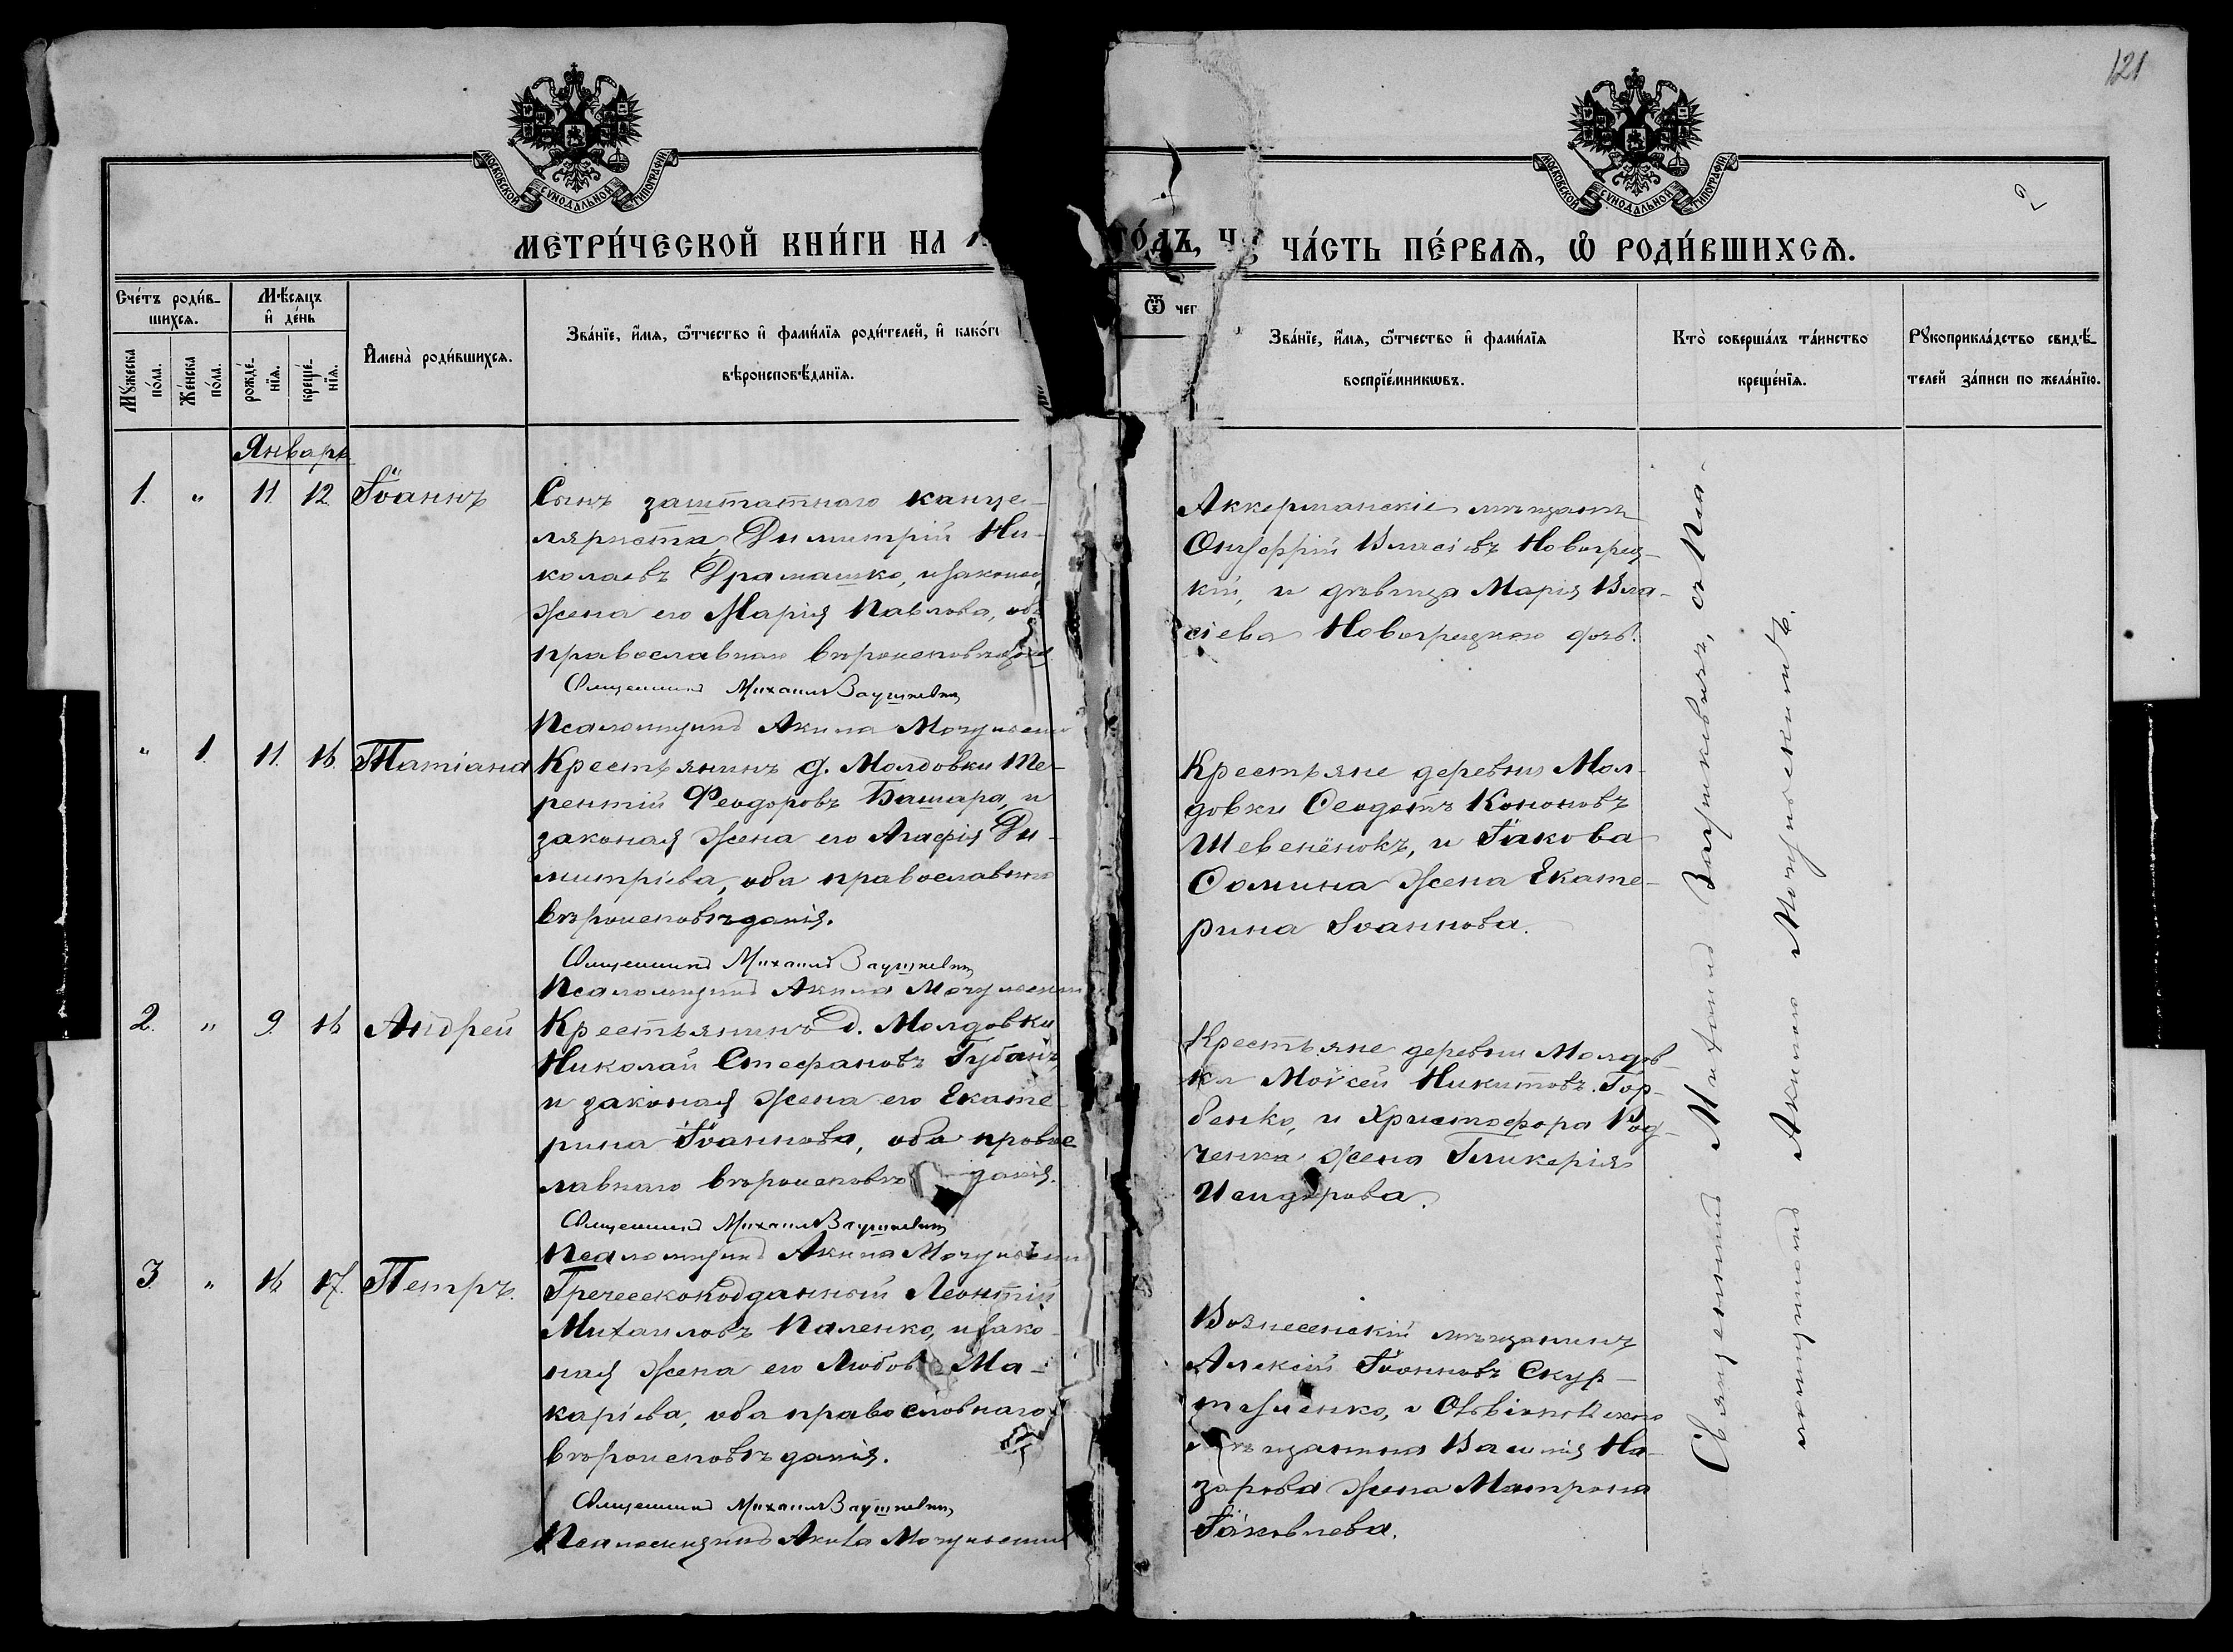 121
МОСКОВСКОЙ СУНОДАЛЬНОЙ ТИПОГРАФІИ
МОСКОВСКОЙ СУНОДАЛЬНОЙ ТИПОГРАФІИ
МЕТРИ́ЧЕСКОЙ КНИ́ГИ НА 1
ГО́ДЪ, Ч
ЧА́СТЬ ПЕ́РВАѦ, Ѽ РОДИ́ВШИХСѦ.
Сче́тъ роди́в-
шихсѧ.
Мѣ́сѧцъ
и҆ де́нь
Мꙋ́жеска
по́ла.
Же́нска
по́ла.
рожде́-
нїѧ.
креще́-
нїѧ.
И҆мена̀ роди́вшихсѧ.
Зва́нїе, и҆́мѧ, ѻ҆́тчество и҆ фами́лїѧ роди́телей, и҆ како́гѡ
вѣроисповѣ́данїѧ.
Ѿ чег
Зва́нїе, и҆́мѧ, ѻ҆́тчество и҆ фами́лїѧ
воспрїе́мникѡвъ.
Кто̀ соверша́лъ та́инство
креще́нїѧ.
Рꙋкоприкла́дство свидѣ́-
телей за́писи по жела́нїю.
Январь
1. " 11. 12. Іоаннъ
Сынъ заштатнаго канце-
ляриста Димитрій Ни-
колаевъ Драмашко, и законая
жена его Марія Павлова, оба
православнаго вѣроисповѣданія
Священникъ Михаилъ Заушкевичъ
Псаломщикъ Акила Мочульскій
Аккерманскіе мѣщане
Онуфрій Власіевъ Новогриц-
кій, и дѣвица Марія Вла-
сіева Новогрицкаго дочь.
" 1. 11. 16. Татіана
Крестьянинъ д. Молдовки Те-
рентій Феодоровъ Башара, и
законая жена его Агафія Ди-
митріева, оба православнаго
вѣроисповѣданія.
Священникъ Михаилъ Заушкевичъ
Псаломщикъ Акила Мочульскій
Крестьяне деревни Мол-
довки Ѳеодотъ Кононовъ
Шевенёнокъ, и Іакова
Ѳомина жена Екате-
рина Іоаннова.
2. " 9. 16 Андрей
Крестьянинъ д. Молдовки
Николай Стефановъ Губанъ,
и законая жена его Екате-
рина Іоаннова, оба правос-
лавнаго вѣроисповѣданія.
Священникъ Михаилъ Заушкевичъ
Псаломщикъ Акила Мочульскій
Крестьяне деревни Молдов-
ки Моѵсей Никитовъ Гор-
бенко, и Христофора Род-
ченка жена Гликерія
Исидорова.
3. " 16. 17. Петръ.
Греческоподданный Леонтій
Михаиловъ Паленко, и зако-
ная жена его Любовь Ма-
каріева, оба православнаго
вѣроисповѣданія.
Священникъ Михаилъ Заушкевичъ
Псаломщикъ Акила Мочульскій
Вознесенскій мѣщанинъ
Алексій Іоанновъ Скур-
мѣщанина Василія На-
зарова жена Матрона
Іаковлева.
Священникъ Михаилъ Заушкевичъ, съ Пса-
ломщикомъ Акилою Мочульскимъ.